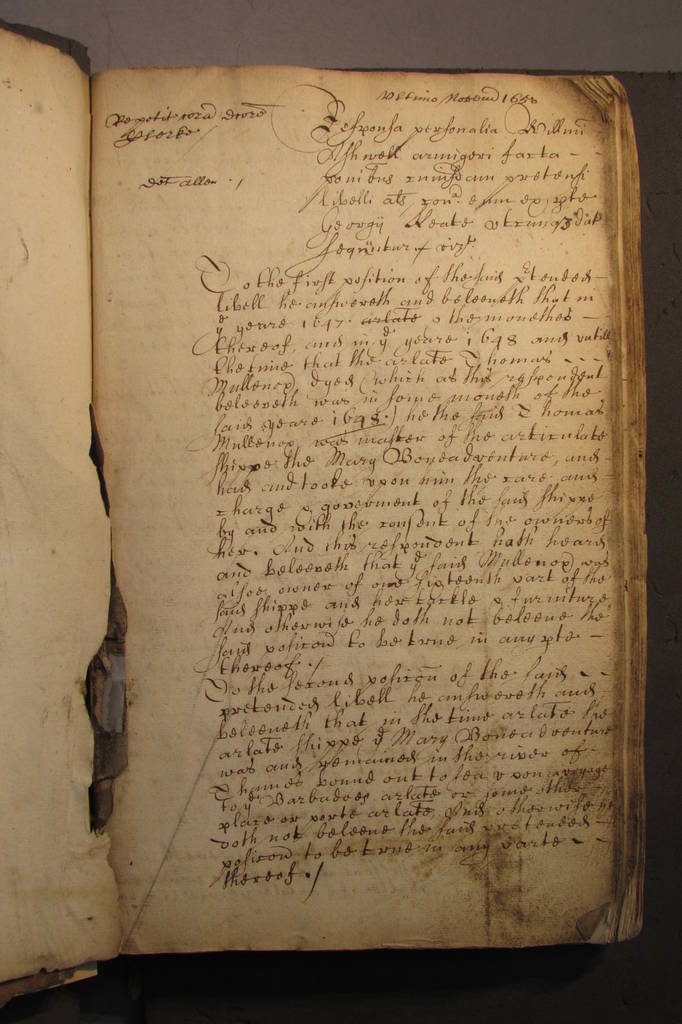 Ultimo Novemb 1650
Repetit corā doctore
Clerke /
dct Allen . /
Responsa personalia Willmi
Ashwell armigeri facta -
positōnibus cuiusdam pretensi
libelli als cora eum ex pte
Georgij Keate
sequuntur vizt.
To the first position of the said pretended -
libell he answereth and beleeveth that in
ye yeare 1647. arlate o the monethes -
thereof, and in ye yeare 1648 and untill
the time that the arlate Thomas - - -
Mullenox dyed (which as this respondent
beleeveth was in some moneth of the
said yeare 1648.) he the said Thomas
Mullenox was master of the articulate
shippe the Mary Boneadventure, and
had and tooke upon him the care and
charge & goverment of the said shippe
by and with the consent of the owners of
her. And this respondent hath heard
and beleeveth that ye said Mullenox was
alsoe owner of one sixteenth part of the
said shippe and her tackle & furniture
And otherwise he doth not beleeve the
said posicoñ to be true in any pte -
thereof. /
To the second posicoñ of the said - -
pretended libell he answereth and
beleeveth that in the time arlate the
arlate shippe ye Mary Boneadventure
was and remained in the river of -
Thames bound out to sea upon a voyage
to ye Barbadoes arlate or some other
place or porte arlate, And otherwise he
doth not beleeve the said pretended -
posicoñ to be true in any parte - -
thereof. /